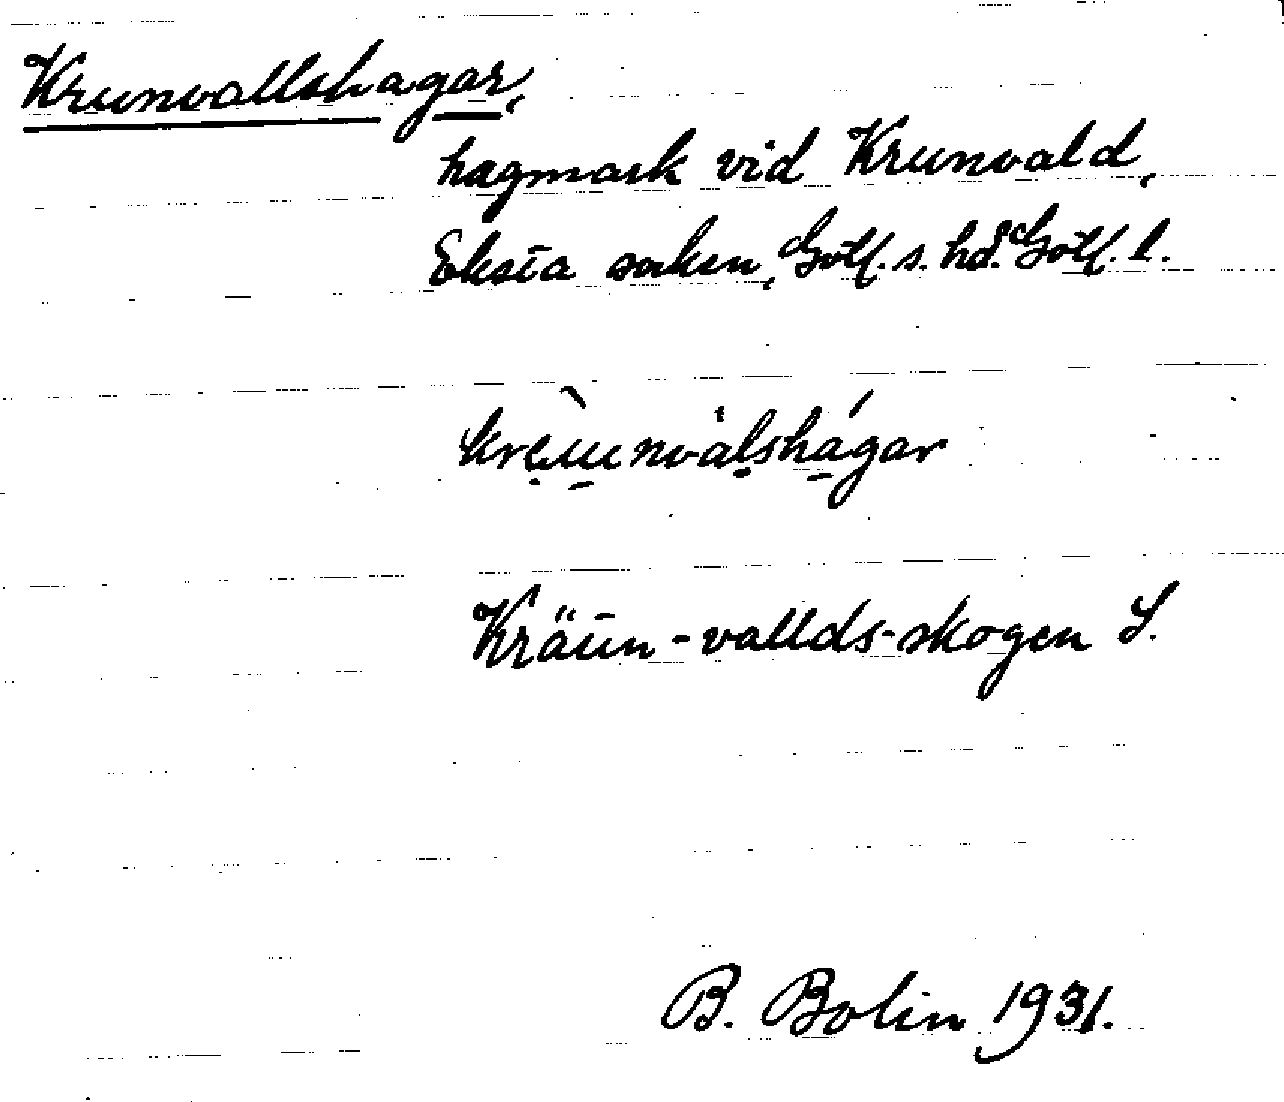 Krunvallshagar,
hagmark vid Krunvald,
Eksta socken, Gotl. s. hd. Gotl. l.
Kräun-vallds-skogen S.
B. Bolin 1931.